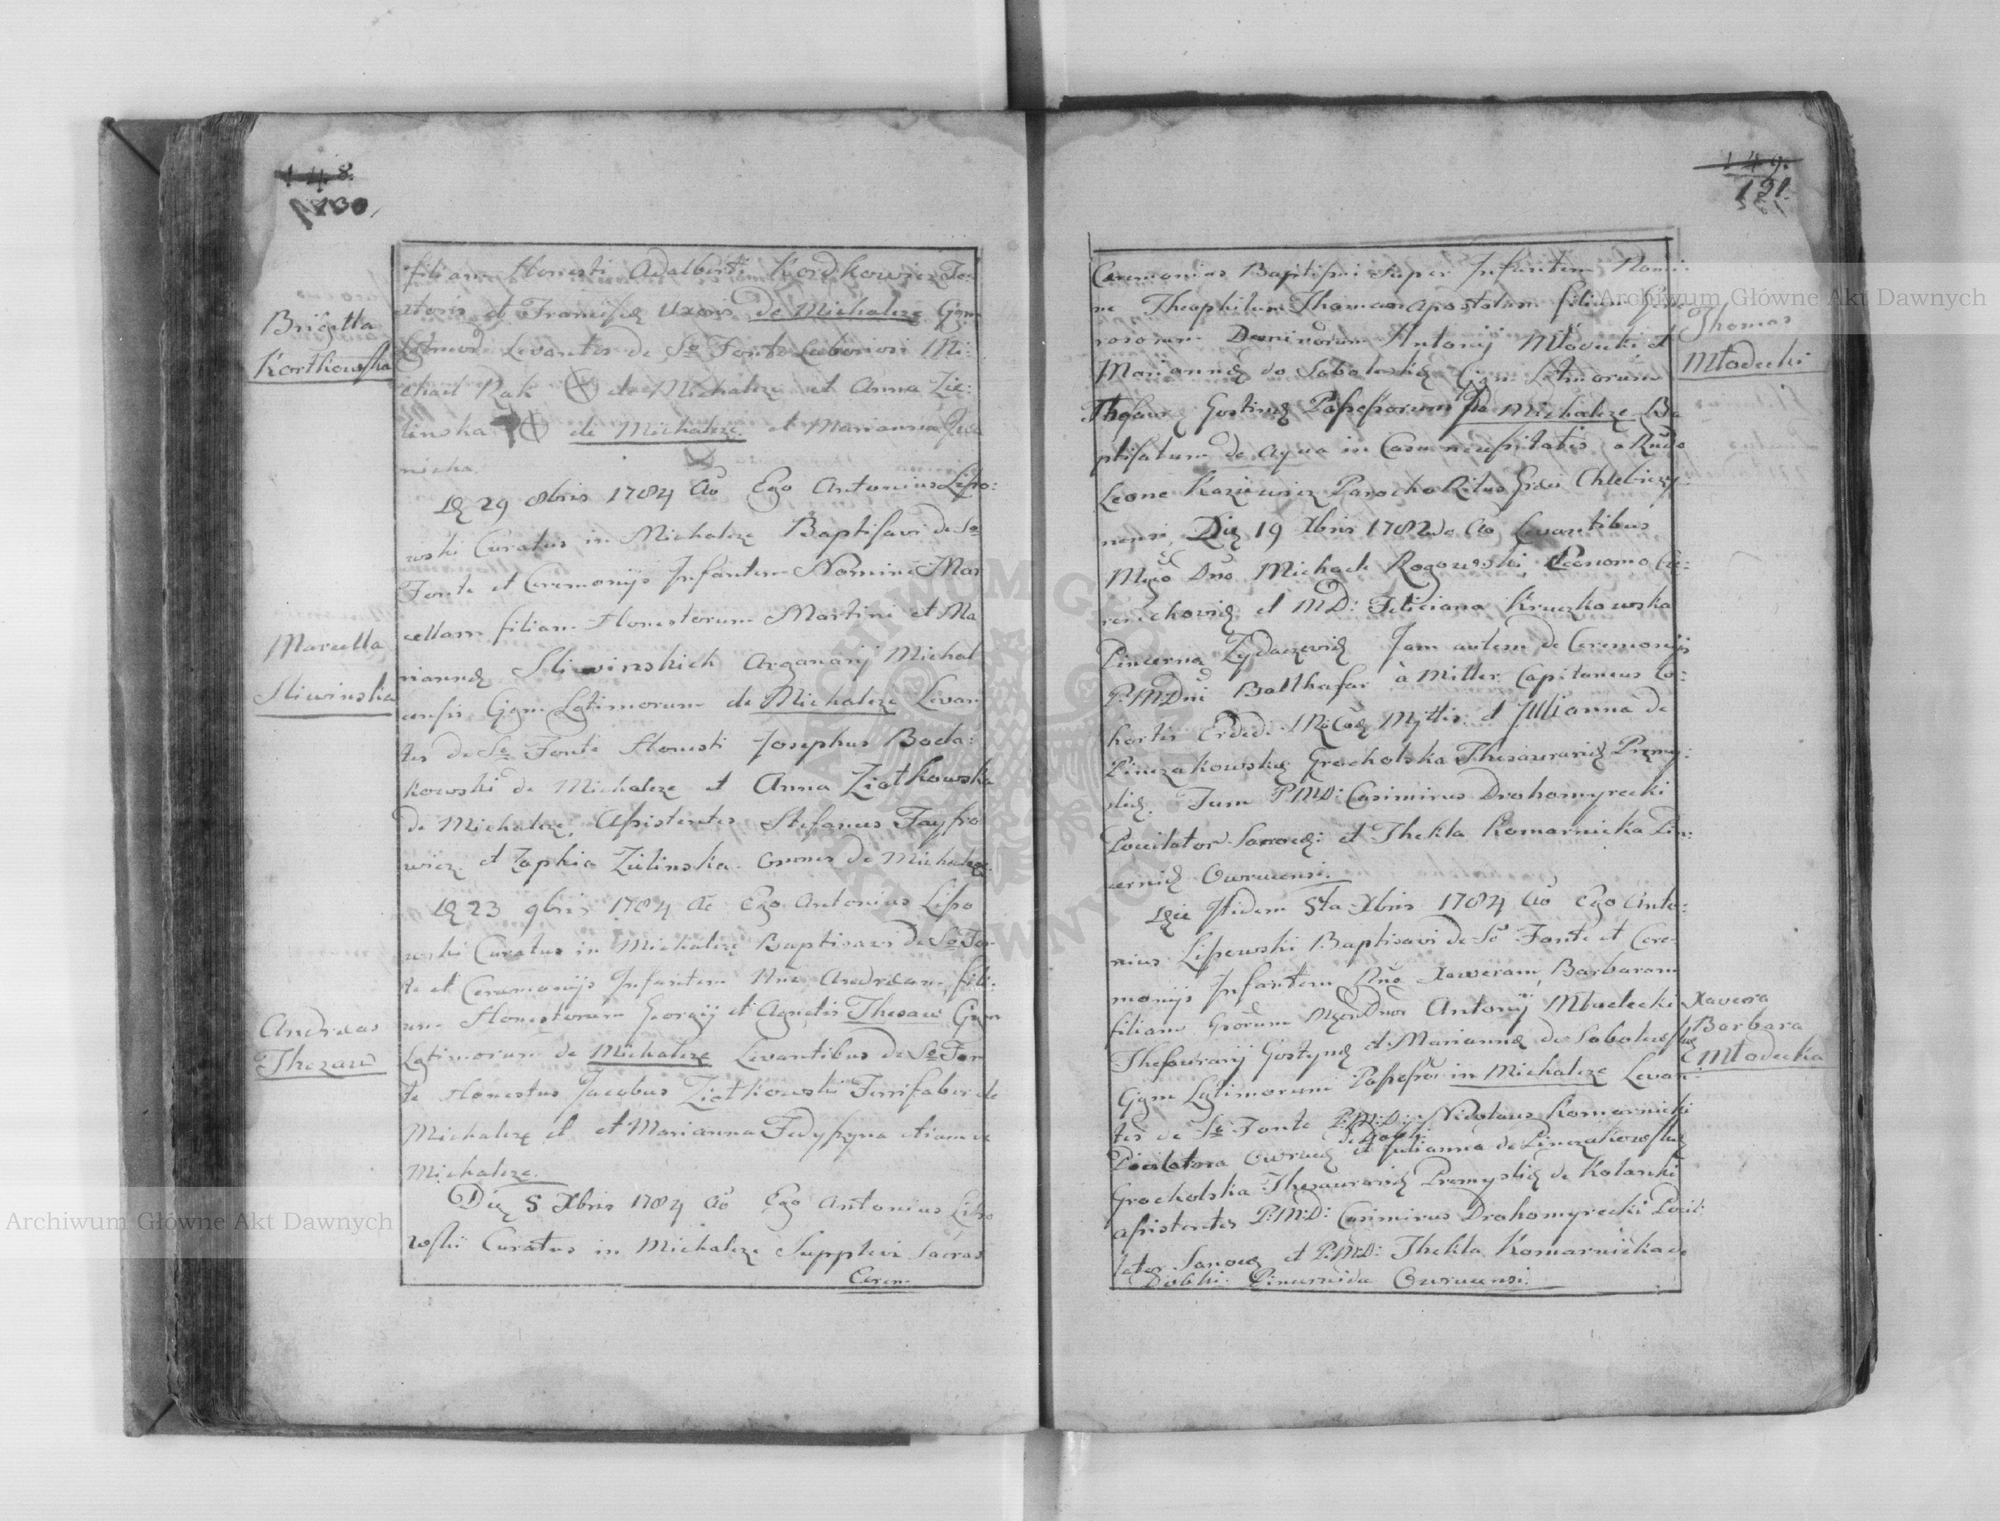 148.
130.
Brigetta
Kortkowska
filiam Honesti Adalberti Kordkowicz
et Francisæ Uxoris de Michalcze Gnm
Levantes de So Fonte Laboriosi Mi:
chael Pak de Michalcze et Anna Zie:
linska de Michalcze et Marianna
nicka.
29 8bris 1784 Ao Ego Antonius Lipo:
wski Curatus in Michalcze Baptisavi de So
Fonte et Ceremonijs Infantem Nomine Mar
cellam filiam Honestorum Martini et Ma
riannæ Sliwinskich Arganarij Michal
censis Ggm Latinorum de Michalcze Levan
tes de So Fonte Honesti Josephus Boda:
kowski de Michalcze et Anna Ziotkowska
de Michalcze, Assistentes Stefanus Fayfro
wicz et Zophia Zielinska omnes de Michalcze
Marcella
Sliwinska
23 9bris 1784 Ao Ego Antonius Lipo
wski Curatus in Michalcze Baptisavi de So Fon
te et Ceremonijs Infantem Nne Andream fili:
um Honestorum Georgij et Agnetis Thezaw Gnm
Latinorum de Michalcze Levantibus de So Fon
te Honestus Jacobus Ziotkowski Ferrifaber de
Michalcze et et Marianna Fedyszyna etiam de
Michalcze.
Andreas
Thezaw
Die 5 Xbris 1784 Ao Ego Antonius Lipo
wski Curatus in Michalcze Supplevi Sacras
Cerem.
149.
131.
Ceremonias Baptismi super Infantem Nomi:
ne Theophilum Thomam Apostolum filium Gene
rosorum Dominorum Antonij Młodecki et
Mariannæ de Sobolewskie Ggm Latinorum
Thesaur Gostinæ Possessorum de Michalcze Ba
ptisatum de Aqua in Casu necessitatis a Rndo
Leone Kaziewicz Parocho Ritus Græci Chlebiczy
nensi, Die 19 Xbris 1782do Ao Levantibus
Mgco Dno Michaele Rogowski Economo
et MD: Feliciana Kruczkowska
Pincerna Zydaczoviæ Jam autem de Ceremonijs
P: MDni Balthasar à Miller Capitaneus Co:
hortis et Julianna de
Pinczakowskie Grocholska Thesaurariæ Przmy:
sliæ. Tum P:MD: Casimirus Drohomyrecki
Pocillator Sanocæ: et Thekla Komarnicka Pin:
cerniæ Owrucensi.
Thomas
Młodecki
Die Itidem 5ta Xbris 1784 Ao Ego Anto:
nius Lipowski Baptisavi de So Fonte et Cere
monijs Infantem Nne Xaweram Barbaram
filiam Gnorum Antonij Młodecki
Thesaurarij Gostynæ et Mariannæ de Sobolewskie
Ggm Latinorum Possessor in Michalcze Levan
tes de So Fonte P:M:D: Nicolaus Komarnicki
Pocilatora Owrucæ et Julianna de Pinczakowskie
Grocholska Thesaurariæ Premysliæ de Kolanki
assistentes P:M:D: Casimirus Drohomyrecki Pocil:
lator Sanocæ et P:MD: Thekla Komarnicka de
Pincernida Owrucensi.
Xavera
Barbara
Młodecka
Archiwum Główne Akt Dawnych
Archiwum Główne Akt Dawnych